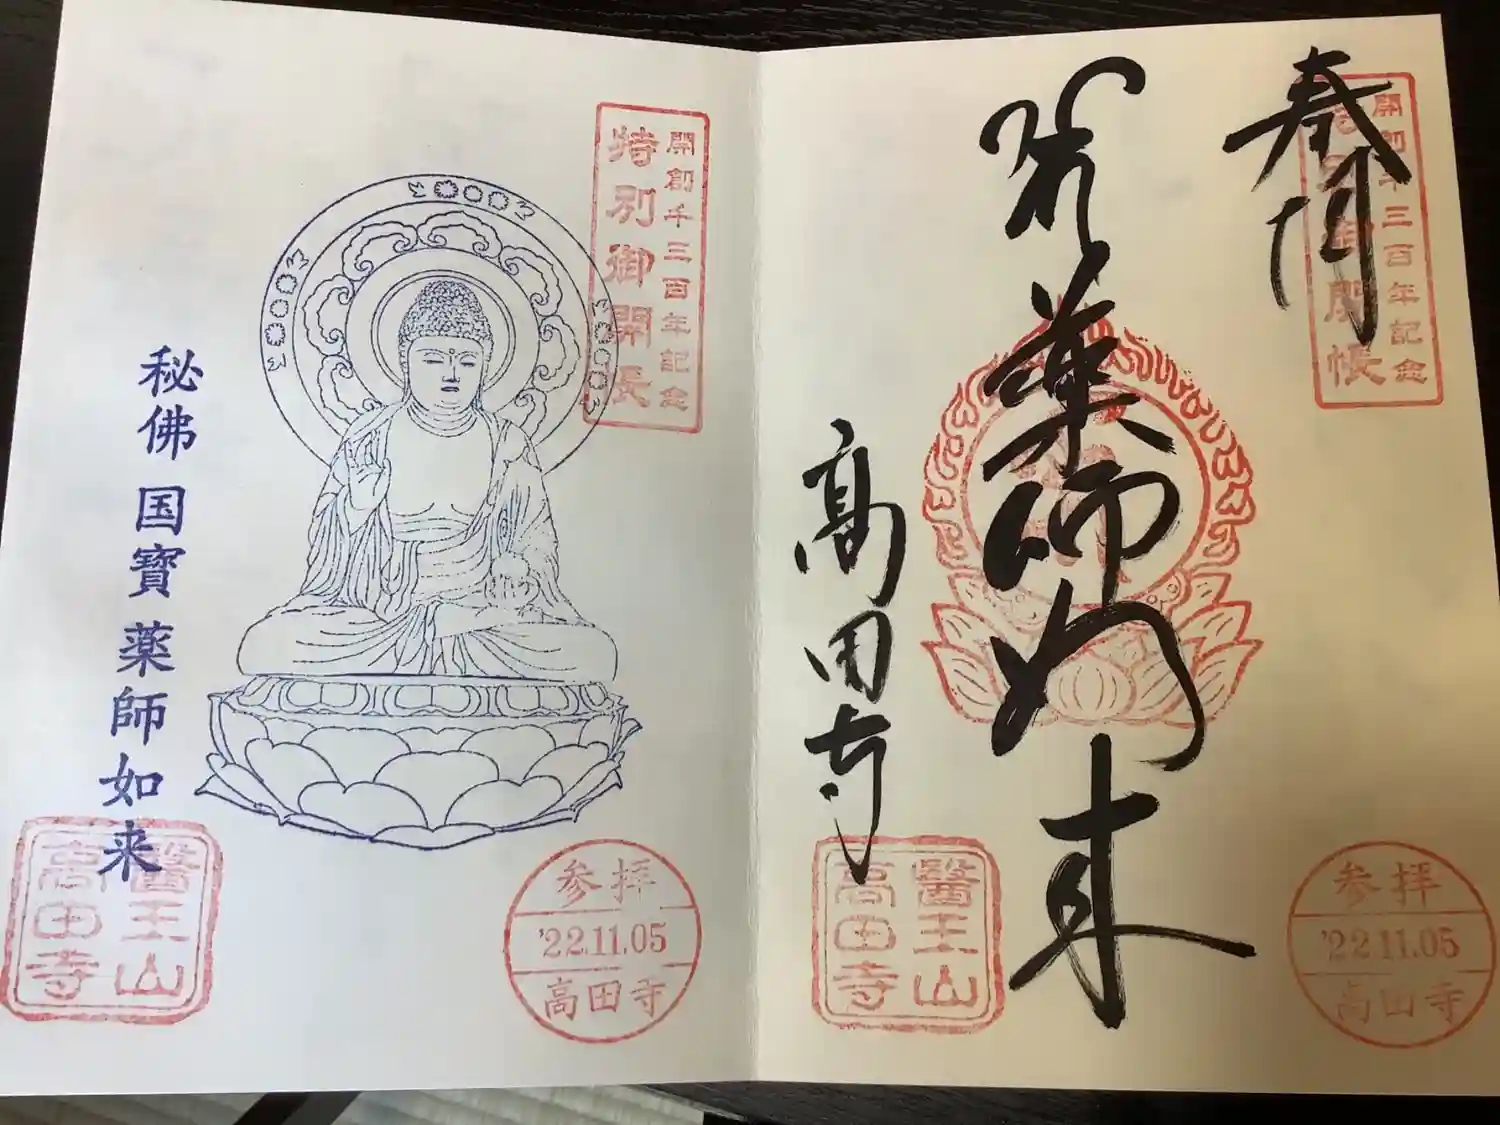 開創千三百年記念
特別御開帳
奉開
薬師如来
高田寺
醫王山
高田寺
参拝
'22.11.05
高田寺
開創千三百年記念
特別御開帳
秘佛 国寶 薬師如来
醫王山
高田寺
参拝
'22.11.05
高田寺